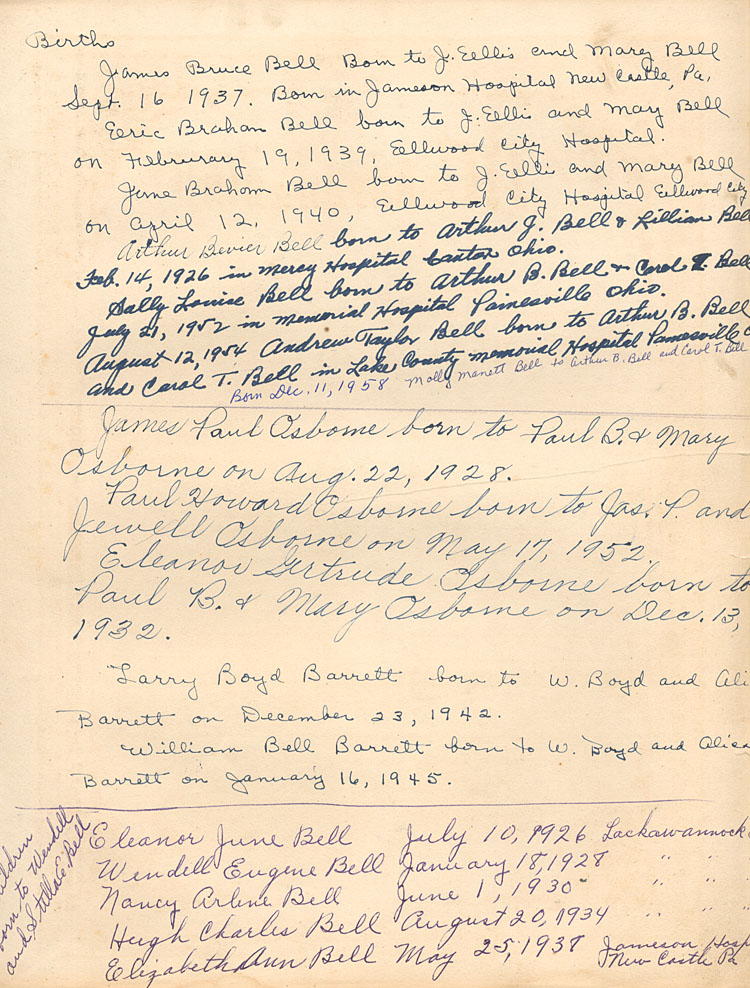 Births
James Bruce Bell Born to J. Eellis and Mary Bell
Sept. 16 1937. Born in Jameson Hospital New Castle, Pa.
Eeric Braham Bell born to J. Eellis and Mary Bell
on Februrary 19, 1939, Eellwood City Hospital.
Jane Braham Bell born to J. Eelli and Mary Bell
on April 12, 1940, Eellwood City Hospital Eellwood City
Arthur Bevier Bell born to Arthur J. Bell & Lillian Bell
Feb. 14, 1926 in Mercy Hospital Canton Ohio.
Sally Louise Bell born to Arthur B. Bell & Carol T. Bell
July 21, 1952 in Memorial Hospital Painesville Ohio.
August 12, 1954 Andrew Taylor Bell born to Arthur B. Bell
and Carol T. Bell in Lake County Memorial Hospital Painesville O
Born Dec. 11, 1958 Molly Manett Bell to Arthur B. Bell and Carol T. Bell
James Paul Osborne born to Paul B. & Mary
Osborne on Aug. 22, 1928.
Paul Howard Osborne born to Jas. P. and
Jewell Osborne on May 17, 1952
Eleanor Gertrude Osborne born to
Paul B. & Mary Osborne on Dec. 13,
1932.
Larry Boyd Barrett born to W. Boyd and Ali
Barrett on December 23, 1942.
William Bell Barrett born to W. Boyd and Alice
Barrett on January 16, 1945.
ldren
orn to Wendell
and Stella E. Bell
Eleanor June Bell July 10, 1926 Lackawannock
Wendell Eugene Bell January 18, 1928 " " "
Nancy Arlene Bell June 1, 1930 " " "
Hugh Charles Bell August 20, 1934 " " "
Elizabeth Ann Bell May 25, 1937 Jameson Hosp
New Castle Pa